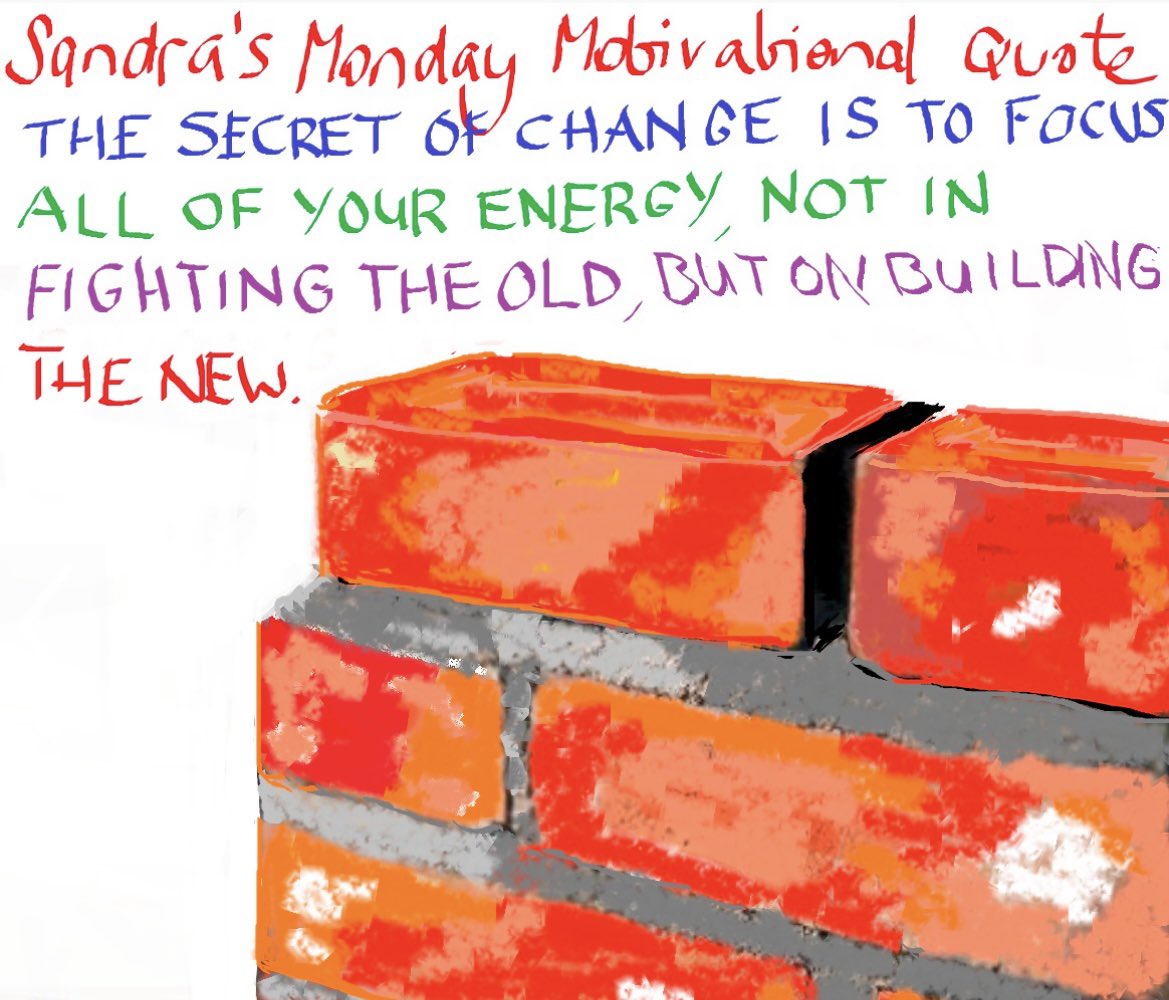 Sandra's Monday Motivational Quote
THE SECRET OF CHANGE IS TO FOCUS
ALL OF YOUR ENERGY, NOT IN
FIGHTING THE OLD, BUT ON BUILDING
THE NEW.